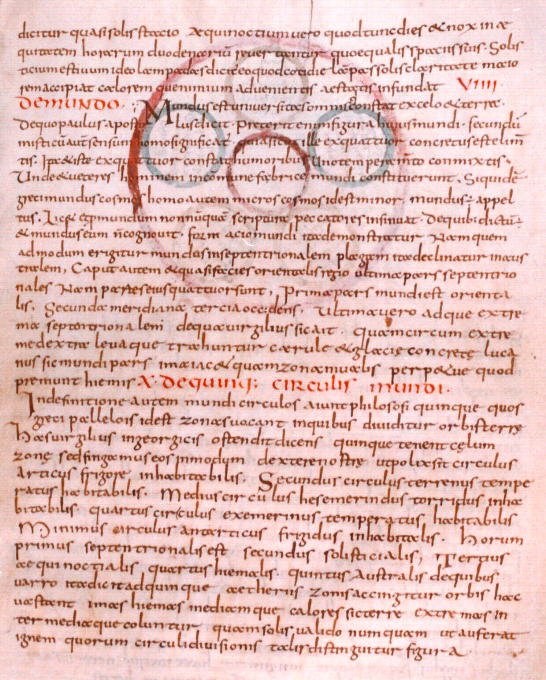 dicitur quasi solis statio Aequinoctium vero quod tunc dies & nox in ae
quitatem horarum duodenariu revertantur quo equalis spatiis suis. Solis
ticium estivum ideo lampadas dicit eo quod ex eo die lampas solis claritate maio
rem accipiat calorem venimium advenientis aestatis infundat VIIII
DE MUNDO. Mundus est universitas omnis quae constat ex celo & terra.
De quo paulus apostolus dicit Preterit enim figura huius mundi. secundu
misticu aut sensum homo significatur quia sicut ille ex quattuor concretus est elim
tis. Ita & iste ex quattuor constat humoribus uno temperamento conmixtis
Unde & veteres hominem in comune fabrice mundi constituerunt. Siquide
greci mundus cosmos homo autem micros cosmos id est minor mundus appel
tus. Lic& et per mundum nonnumquae scriptura peccatores insinuat. De quibus dictu
& mundus eum n cognovit. formatio mundi ita demonstratur Nam quem
admodum erigitur mundus in septentrionalem plagam ita declinatur in aus
tralem, Caput autem & quasi facies orientalis regio ultima pars septentrio
nales Nam partes eius quattuor sunt, Prima pars mundi est orienta
lis. Secunda meridiana tercia occidens. Ultima vero adque extre
ma septentrionalem de qua virgilius sic ait. quam circum extre
me dextra levaque trahuntur caerule & glacie concrete luca
nus sic mundi pars ima iac& quam zona nivalis perpetue quod
premunt hiemis X. DE QUINQ; CIRCULIS MUNDI.
In definitione autem mundi circulos aiunt philosofi quinque quos
greci parallelois id est zonas vocant in quibus dividitur orbis terre
Has virgilius in georgicis ostendit dicens quinque tenent celum
zone sed fingamus eos in modum dextere nostre ut polix sit circulus
articus frigore inhabitabilis. Secundus circulus terrenus tempe
ratus habitabilis. Medius circulus hesemerinus torridus inha
bitabilis. quartus circulus exemerinus temperatus habitabilis
Minimus circulus antarticus frigidus inhabitalis. Horum
primus septentrionalis est secundus solisticialis, Tertius
aequinoctialis quartus hiemalis. quintus Australis de quibus
varro ita dicit ad quinque aetheriis zonis accingitur orbis hac
vastant imas hiemas mediam que calores sic terre extremas in
ter mediaeque coluntur quam solis valido numquam ut auferat
ignem quorum circuli divisionis talis distinguitur figura